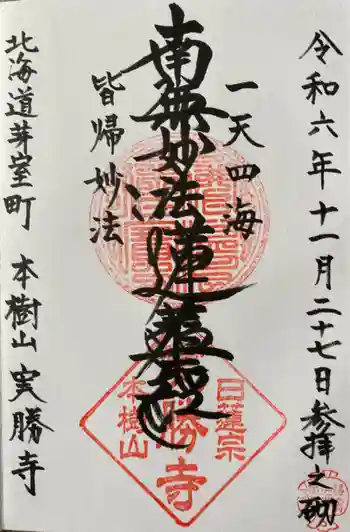 令和六年十一月二十七日参拝之砌
一天四海
南無妙法蓮華経
皆帰妙法
日蓮宗
実勝寺
本樹山
北海道芽室町 本樹山実勝寺